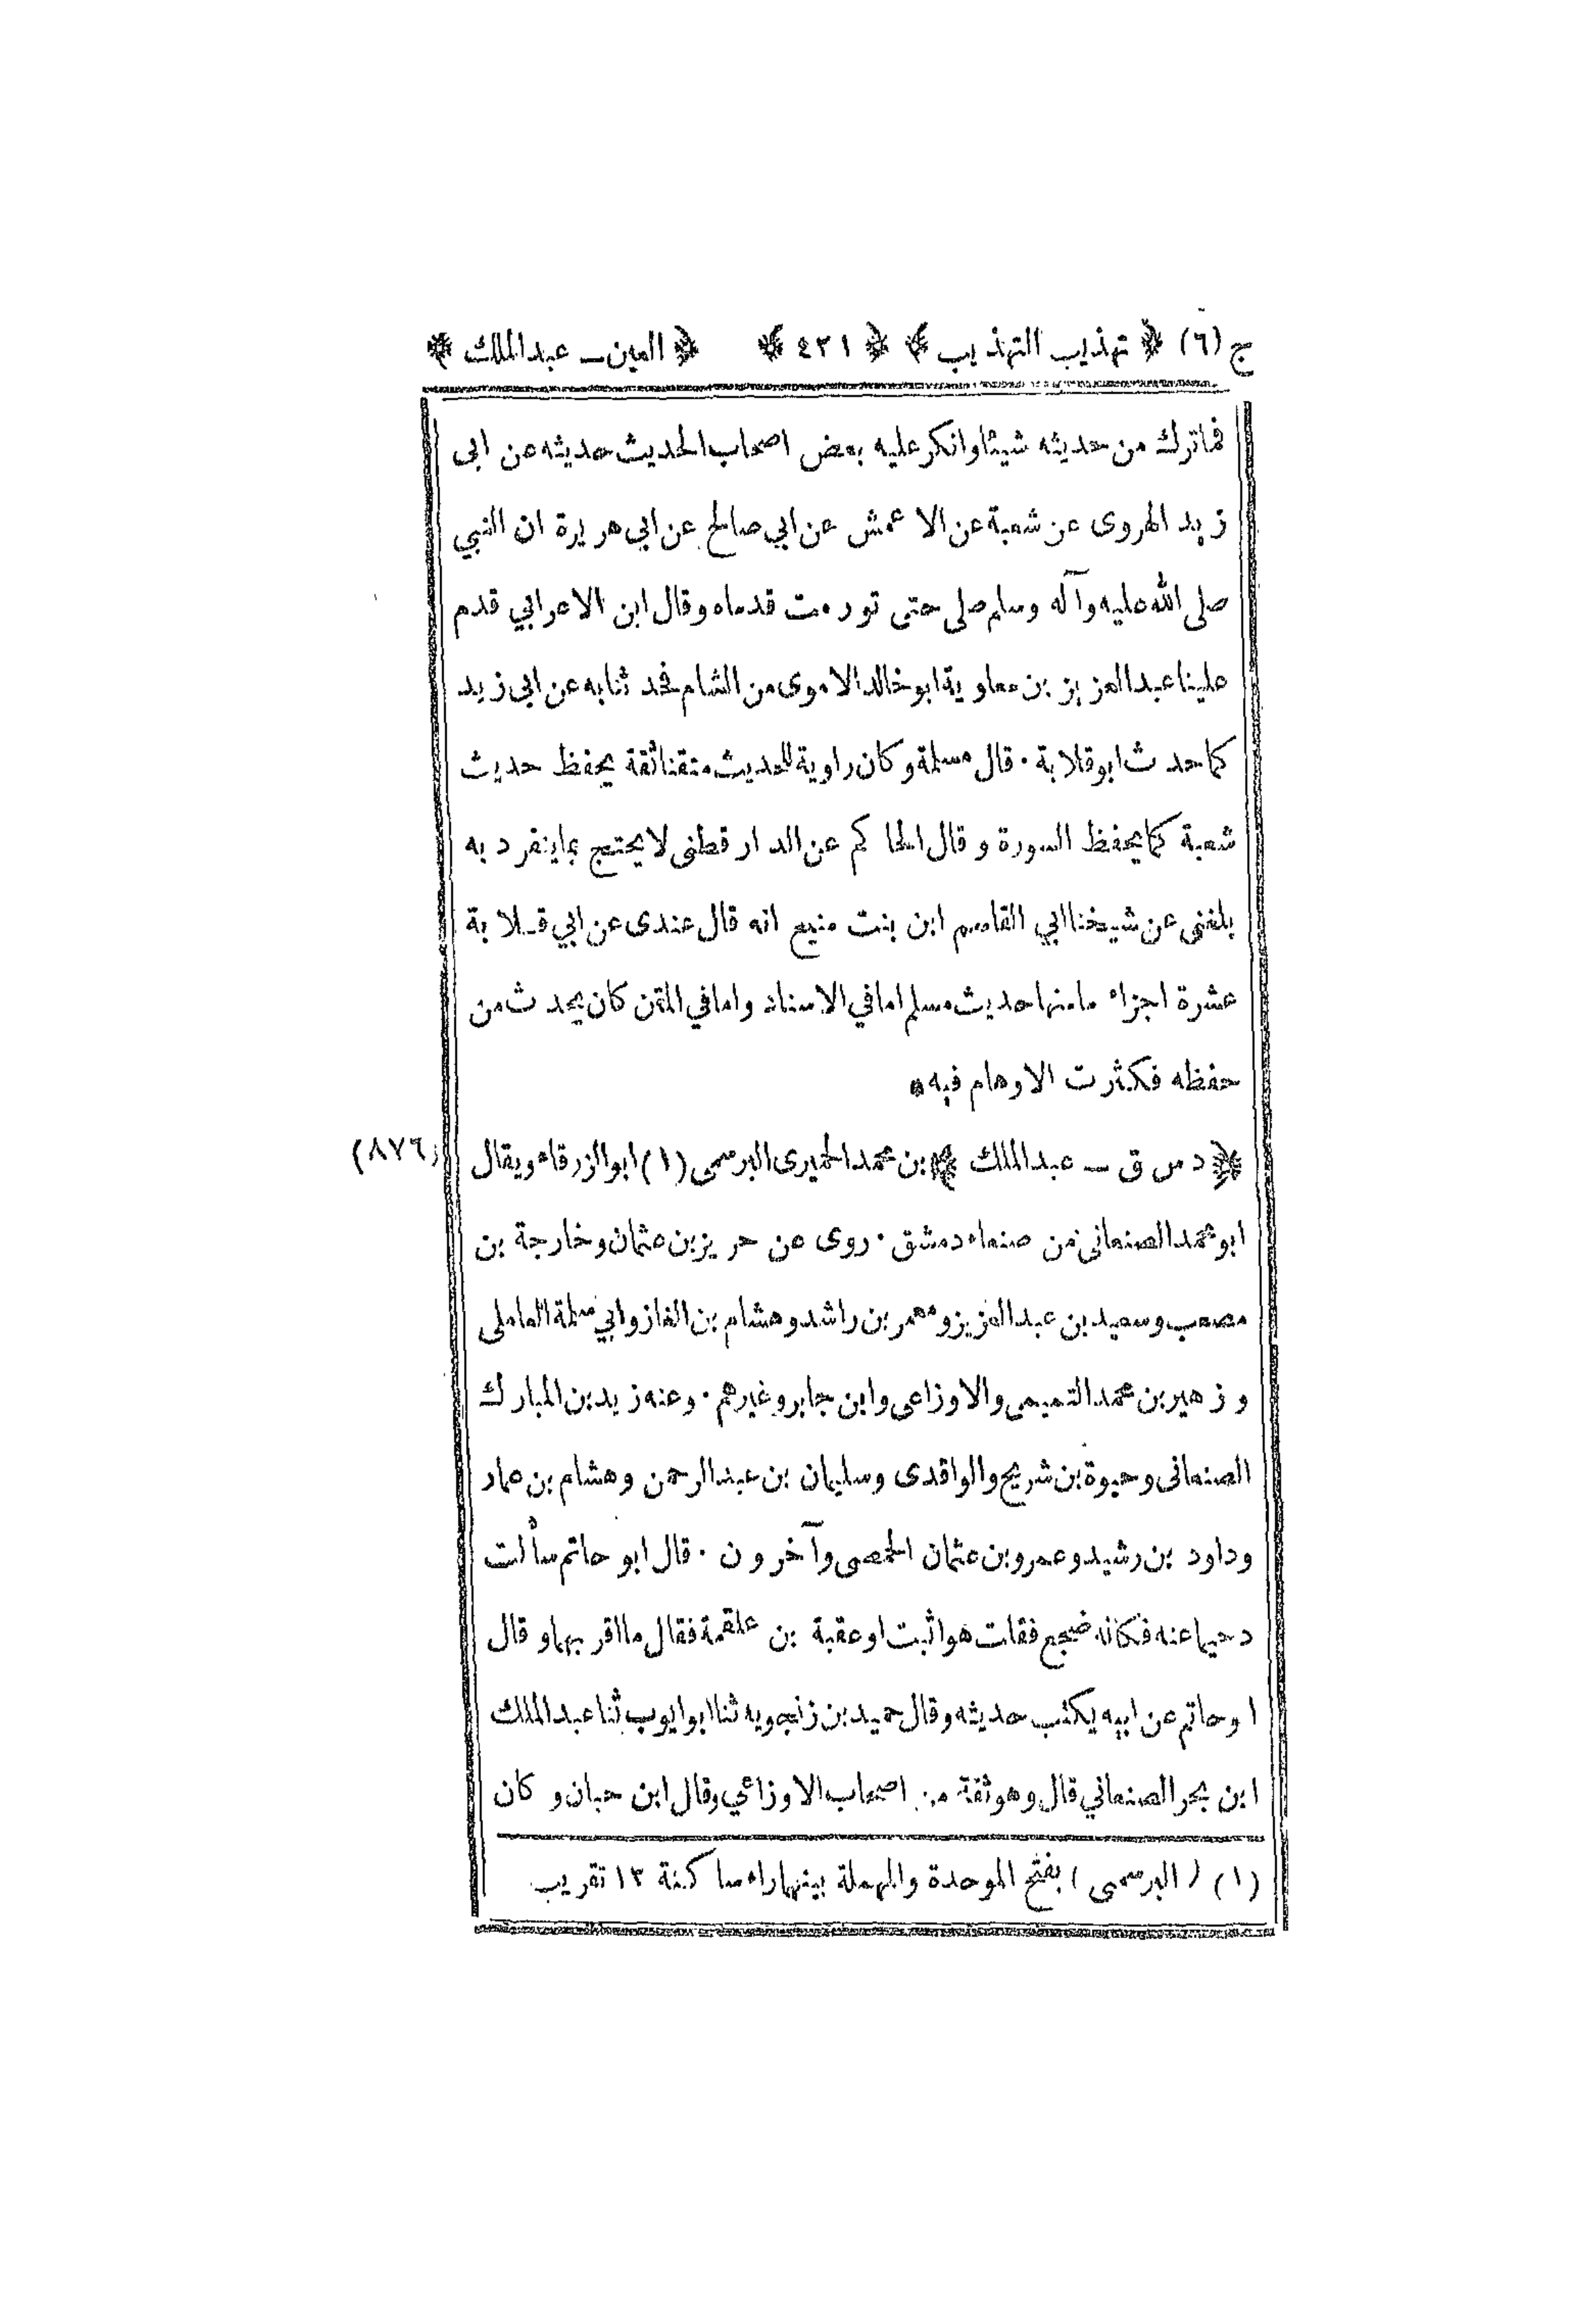 ج (٦) ﴿ تهذيب التهذيب ﴾ ﴿ ٤٢١ ﴾ ﴿ العين ـ عبدالملك ﴾
فماترك من حديثه شيئا وانكر عليه بعض اصحاب الحديث حديثه عن ابى
زيد الهروى عن شعبة عن الاعمش عن ابي صالح عن ابي هريرة ان النبي
صلى الله عليه وآله وسلم صلى حتى تورمت قدماه وقال ابن الاعرابي قدم
علينا عبدالعزيز بن معاوية ابوخالد الاموى من الشام فحدثنا به عن ابى زيد
كما حدث ابوقلابة · قال مسلمة وكان راوية للحديث متقنا ثقة يحفظ حديث
شعبة كما يحفظ السورة وقال الحاكم عن الدارقطنى لا يحتج بما ينفرد به
بلغنى عن شيخنا ابي القاسم ابن بنت منيع انه قال عندى عن ابي قلابة
عشرة اجزاء مامنها حديث مسلم امافي الاسناد وامافي المتن كان يحدث من
حفظه فكثرت الاوهام فيه *
﴿ د س ق ـ عبدالملك ﴾ بن محمد الحميرى البرسمى (١) ابوالزرقاء ويقال
(٨٧٦)
ابومحمد الصنعانى من صنعاء دمشق · روى عن حريز بن عثمان وخارجة بن
مصعب وسعيد بن عبدالعزيز ومعمر بن راشد وهشام بن الغاز وابي سلمة العاملى
وزهير بن محمد التميمى والاوزاعى وابن جابر وغيرهم · وعنه زيد بن المبارك
الصنعانى وحيوة بن شريح والواقدى وسليمان بن عبدالرحمن وهشام بن عمار
وداود بن رشيد وعمرو بن عثمان الحمصى وآخرون · قال ابو حاتم سألت
دحيما عنه فكانه ضجع فقلت هو اثبت او عقبة بن علقمة فقال مااقربهما وقال
ا وحاتم عن ابيه يكتب حديثه وقال حميد بن زنجويه ثنا ابوايوب ثنا عبدالملك
ابن بحر الصنعاني قال وهو ثقة من اصحاب الاوزاعي وقال ابن حبان وكان
(١) (البرسمى) بفتح الموحدة والمهملة بينهما راء ساكنة ١٣ تقريب